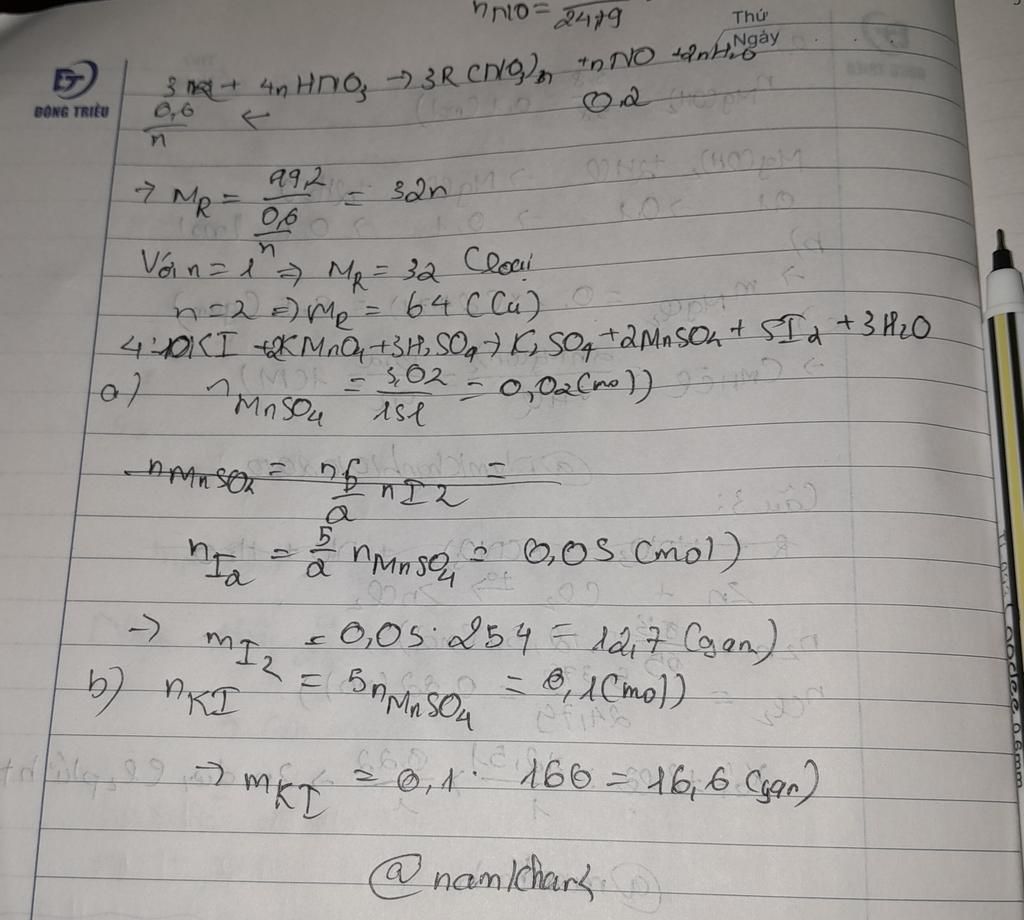 nNO = 2479
Thứ
Ngày
ĐT
ĐÔNG TRIỀU
3 + 4nHNO3 → 3R(NO3)n + nNO + 2nH2O
0,6/n ← 0.2
→ MR = 99,2/(0,6/n) = 32n
Với n = 1 ⇒ MR = 32 (loại
n = 2 ⇒ MR = 64 (Cu)
4: 10KI + 2KMnO4 + 3H2SO4 → K2SO4 + 2MnSO4 + 5I2 + 3H2O
a) nMnSO4 = 3,02/151 = 0,02 (mol)
nI2 = 5/2 nMnSO4 = 0,05 (mol)
→ mI2 = 0,05 . 254 = 12,7 (gam)
b) nKI = 5nMnSO4 = 0,1 (mol)
→ mKI = 0,1 . 166 = 16,6 (gam)
@namkhanh
0.6mm